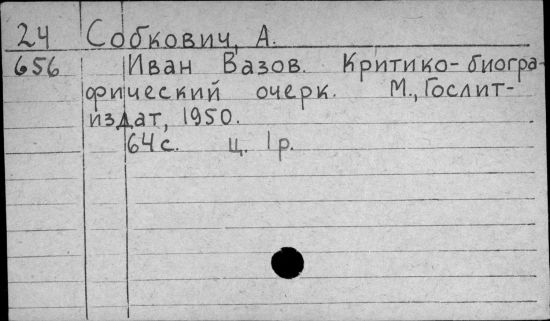 24 Собкович, А.
656 Иван Вазов. Критико-биогра-
фический очерк. М., Гослит-
издат, 1950.
64 с. ц. 1 р.